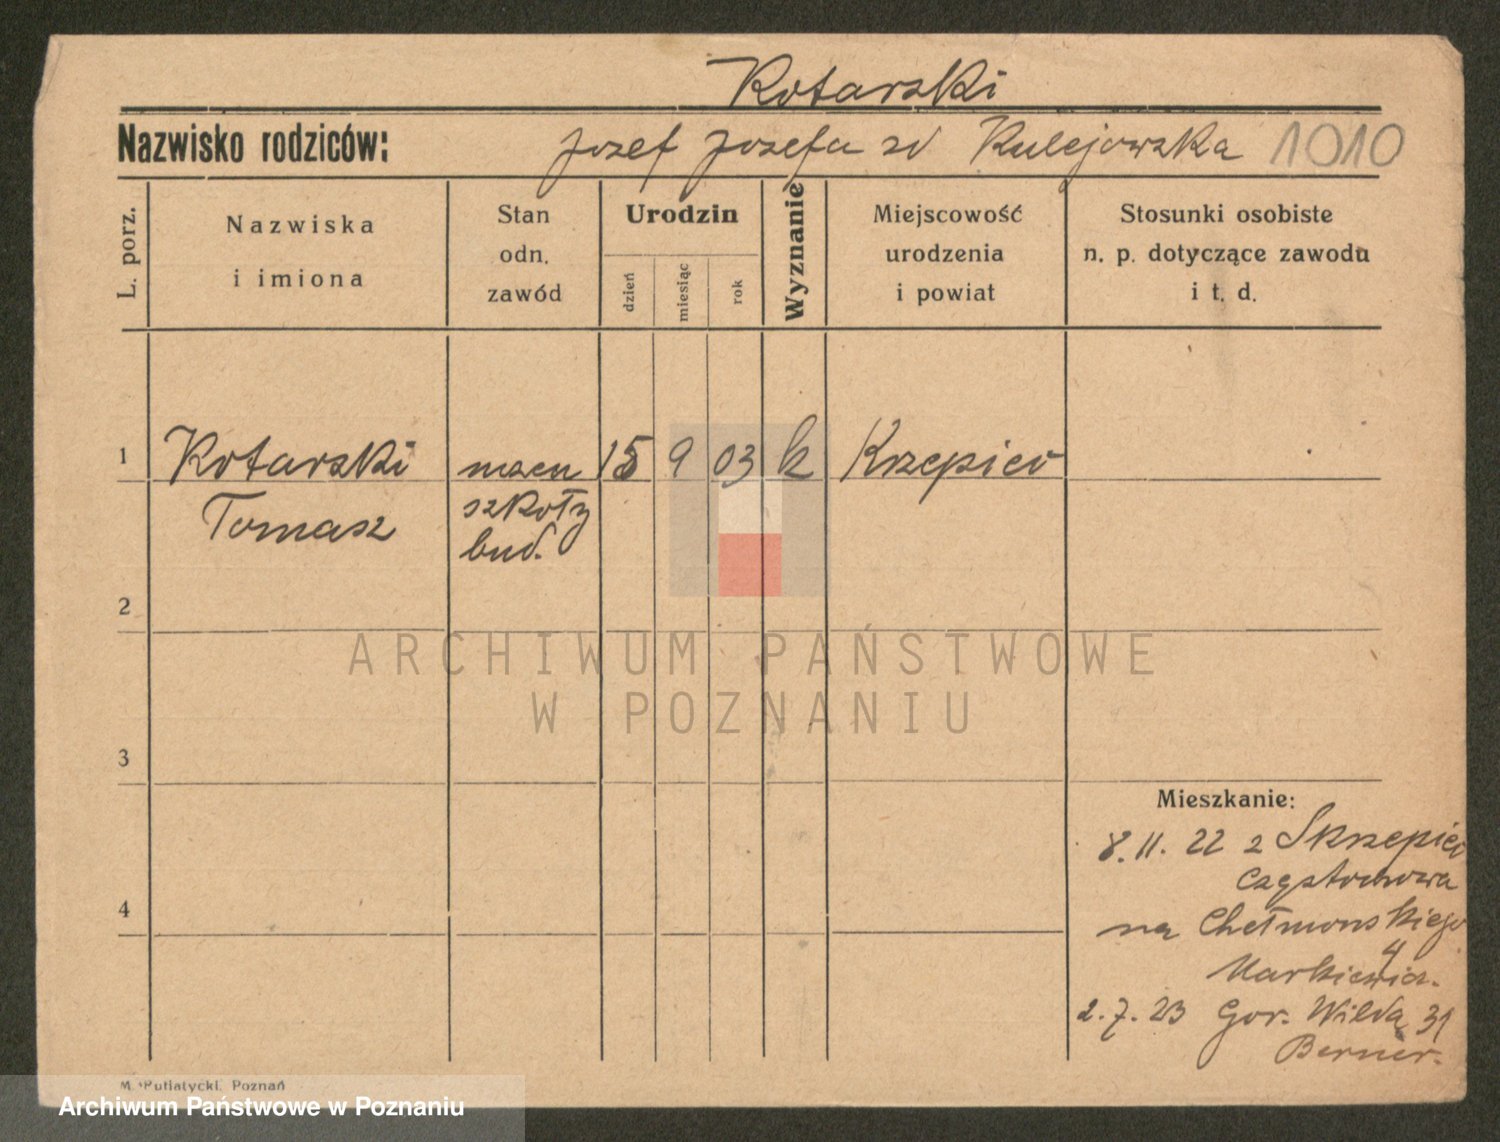 Kotarski
Nazwisko rodziców: Jozef Jozefa zd Kulejowska 1010
L. porz.
Nazwiska
i imiona
Stan
odn.
zawód
Urodzin
dzień
miesiąc
rok
Wyznanie
Miejscowość
urodzenia
i powiat
Stosunki osobiste
n. p. dotyczące zawodu
i t. d.
1 Kotarski uczen 15 9 03 k Krzepice
Tomasz szkoły
bud.
2
ARCHIWUM PAŃSTWOWE
W POZNANIU
3
Mieszkanie:
8. 11. 22 z Krzepice
Częstochowa
4
na Chełmonskiego
4
Markiewicz.
2. 7. 23 Gor. Wilda 31
Berner.
M. Putiatycki, Poznań
Archiwum Państwowe w Poznaniu